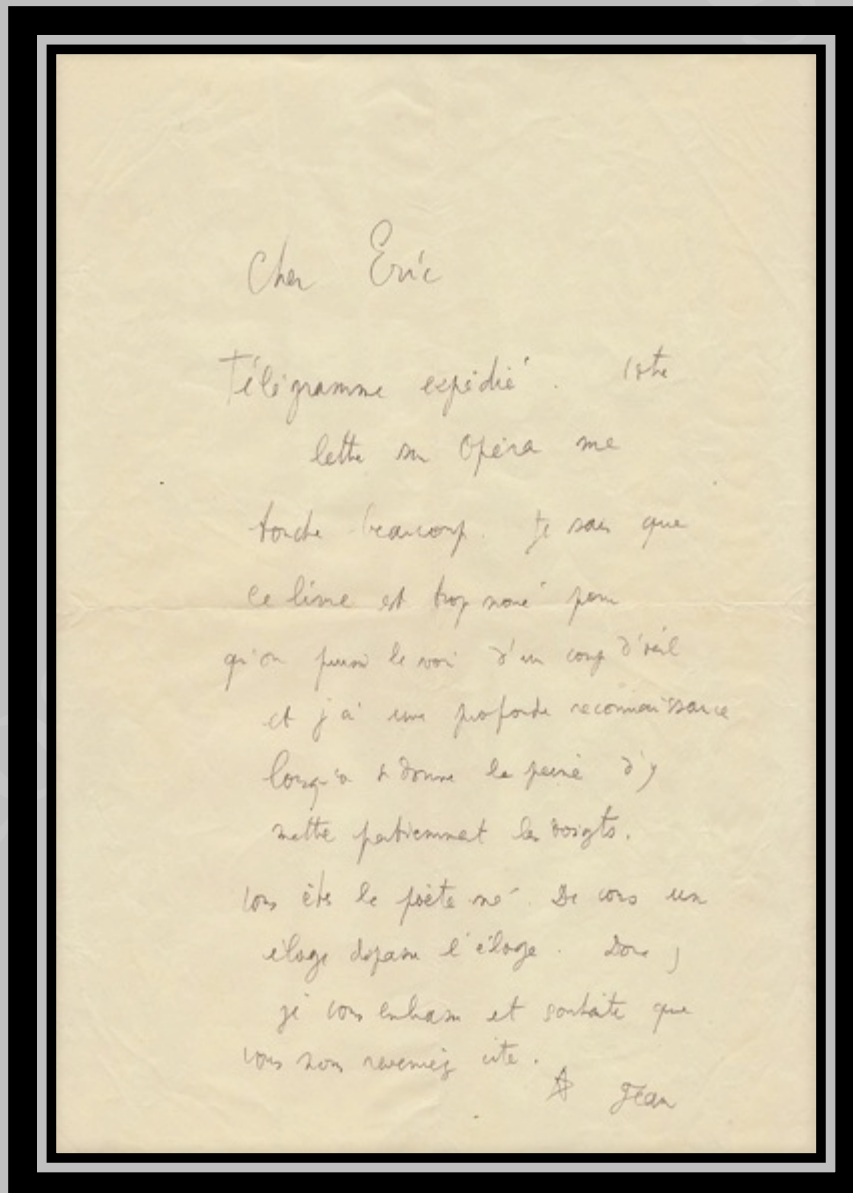 Cher Eric
Télégramme expédié. Votre
lettre sur Opéra me
touche beaucoup. Je sais que
ce livre est trop noué pour
qu'on puisse le voir d'un coup d'œil
et j'ai une profonde reconnaissance
lorsqu'on se donne la peine d'y
mettre patiemment les doigts.
Vous êtes le poète né. De vous un
éloge dépasse l'éloge. Donc
je vous embrasse et souhaite que
vous nous reveniez vite.
Jean